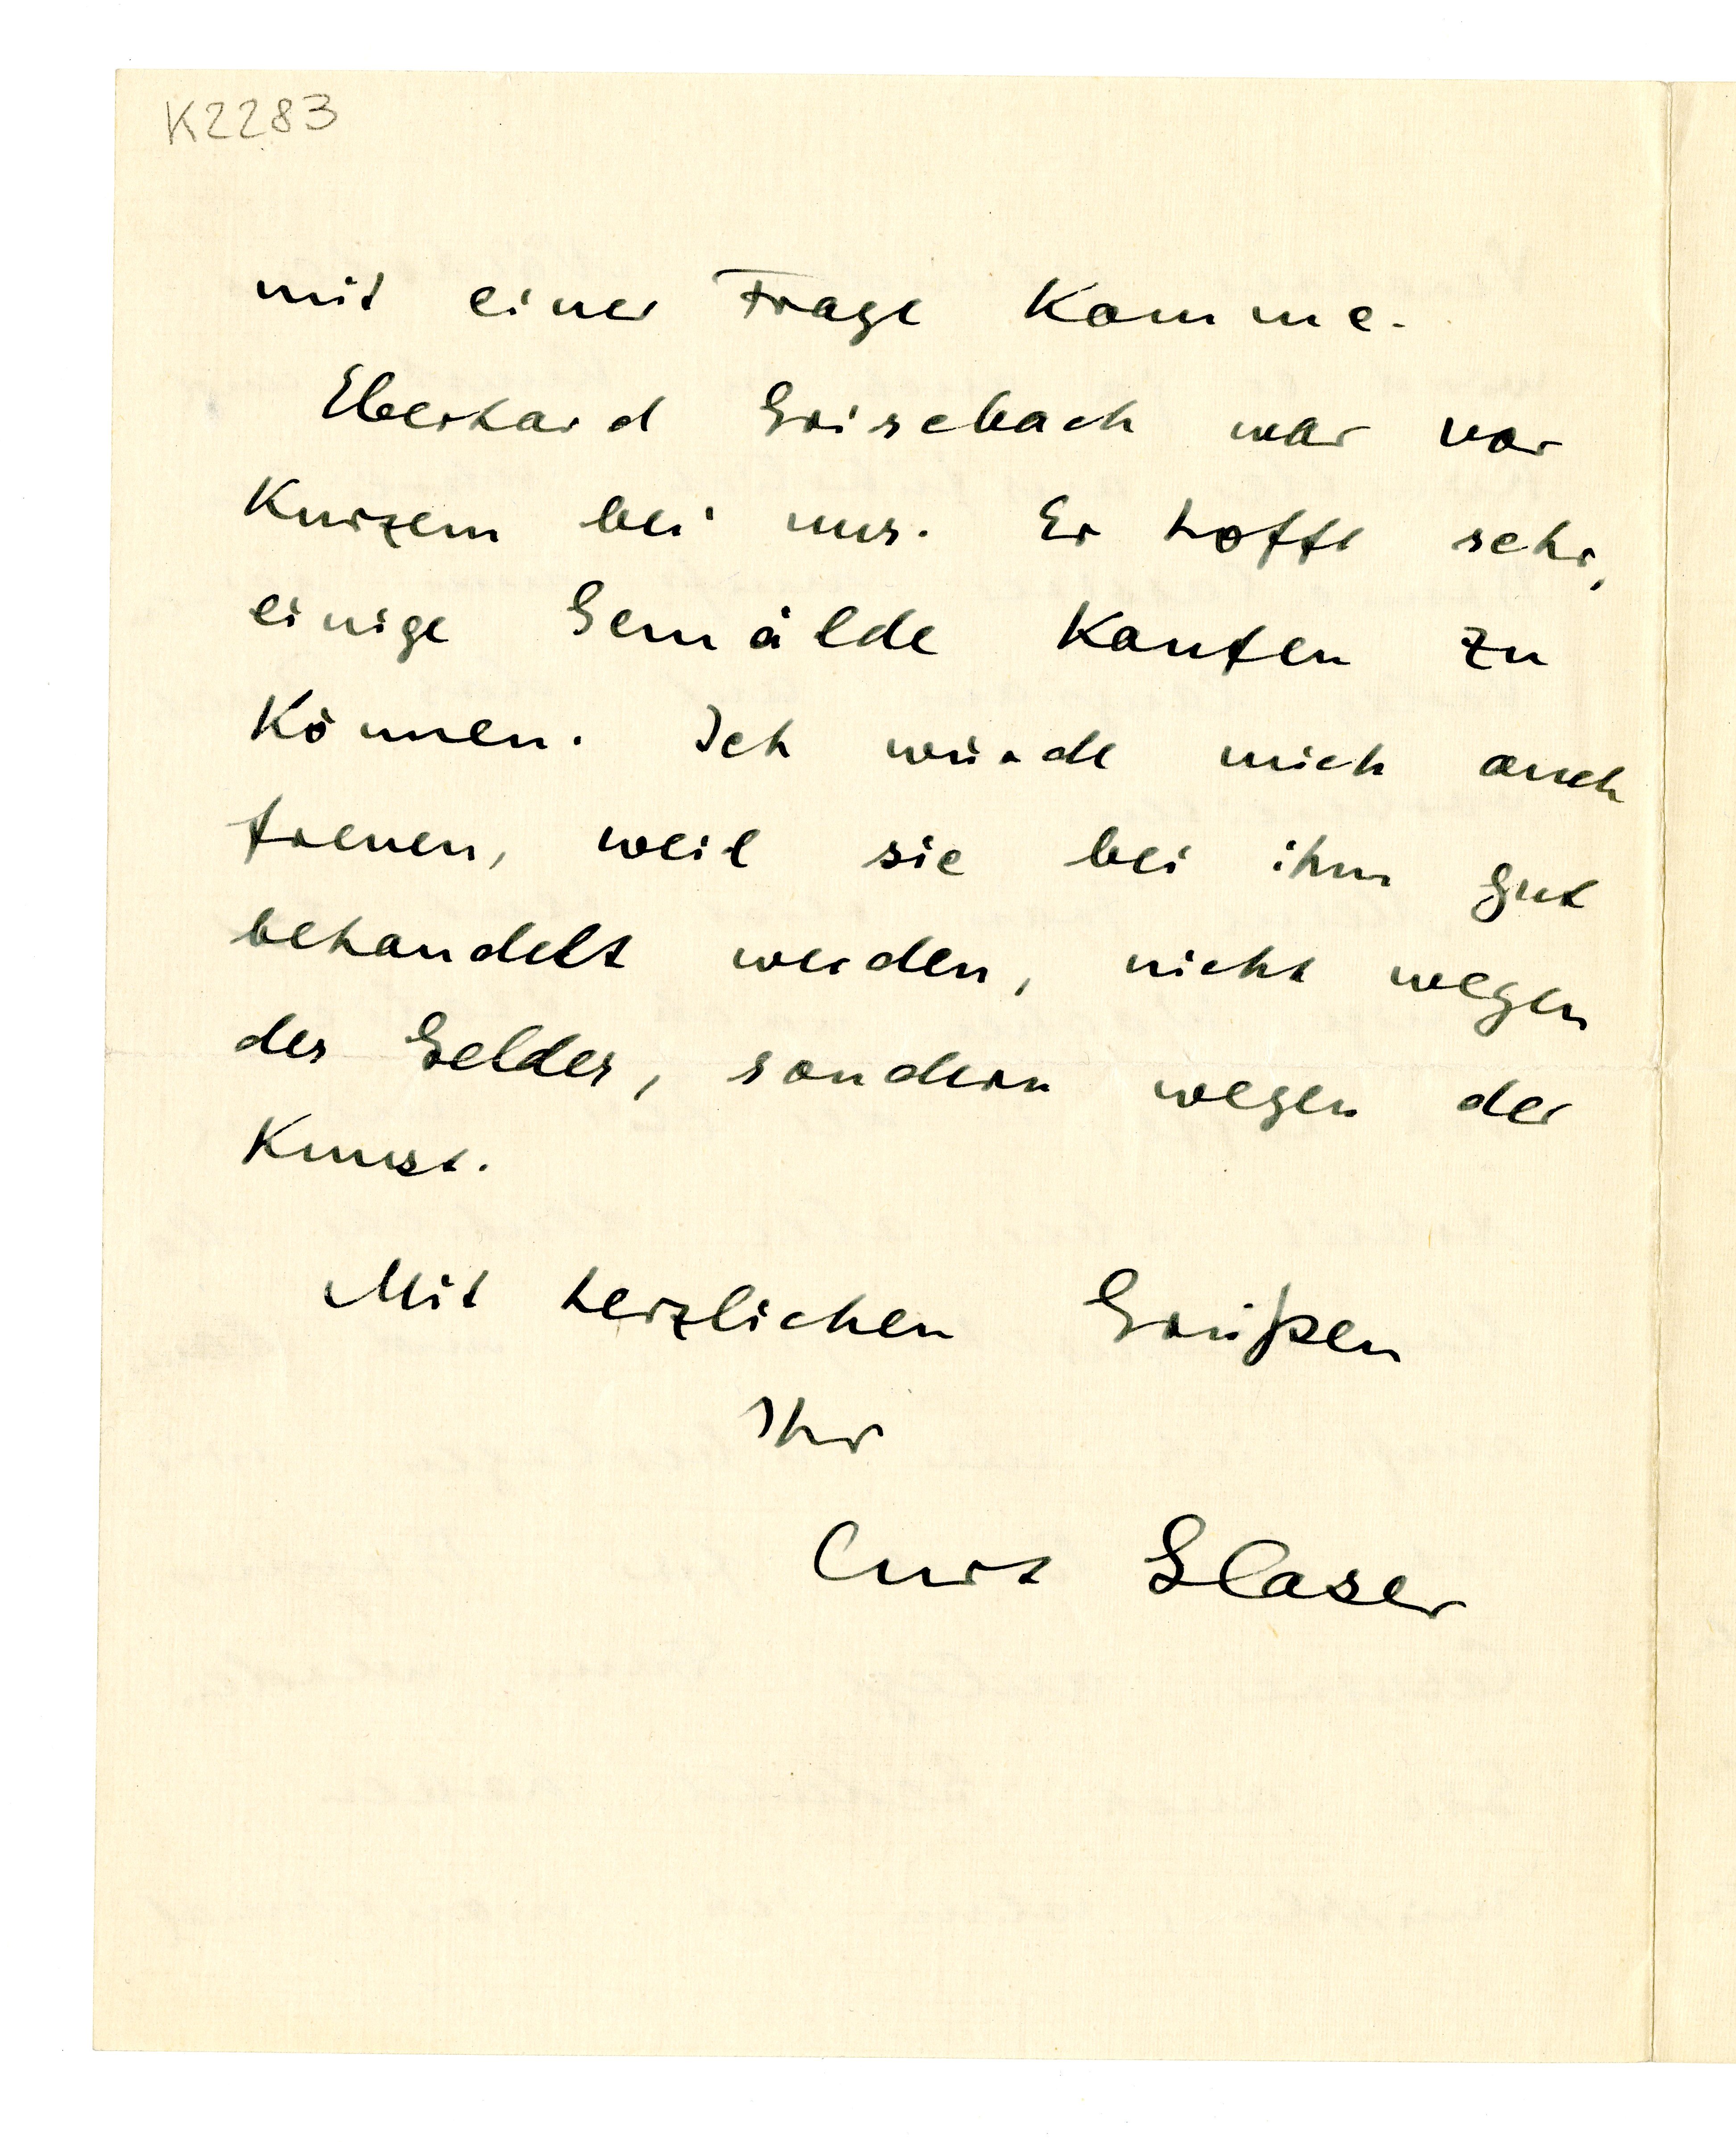 K2283
mit einer Frage komme.
Eberhard Grisebach war vor
Kurzem bei uns. Er hofft sehr,
einige Gemälde kaufen zu
können. Ich würde mich auch
freuen, weil sie bei ihm gut
behandelt werden, nicht wegen
des Geldes, sondern wegen der
Kunst.
Mit herzlichen Grüßen
Ihr
Curt Glaser